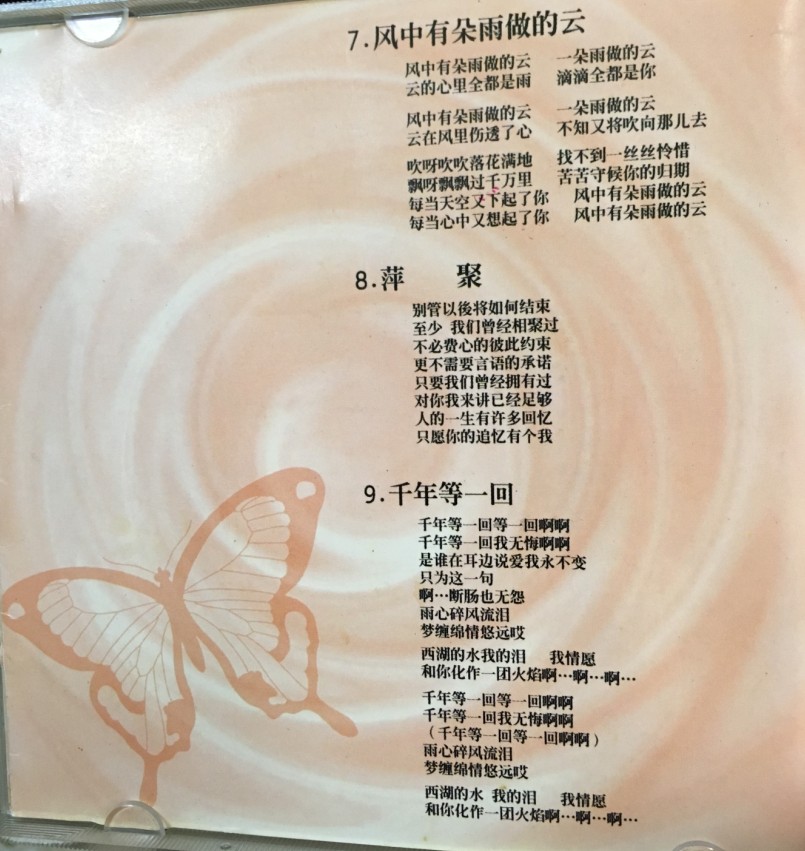 7.风中有朵雨做的云
风中有朵雨做的云 一朵雨做的云
云的心里全都是雨 滴滴全都是你
风中有朵雨做的云 一朵雨做的云
云在风里伤透了心 不知又将吹向那儿去
吹呀吹吹落花满地 找不到一丝丝怜惜
飘呀飘飘过千万里 苦苦守候你的归期
每当天空又下起了你 风中有朵雨做的云
每当心中又想起了你 风中有朵雨做的云
8.萍 聚
别管以後将如何结束
至少 我们曾经相聚过
不必费心的彼此约束
更不需要言语的承诺
只要我们曾经拥有过
对你我来讲已经足够
人的一生有许多回忆
只愿你的追忆有个我
9.千年等一回
千年等一回等一回啊啊
千年等一回我无悔啊啊
是谁在耳边说爱我永不变
只为这一句
啊…断肠也无怨
雨心碎风流泪
梦缠绵情悠远哎
西湖的水我的泪 我情愿
和你化作一团火焰啊…啊…啊…
千年等一回等一回啊啊
千年等一回我无悔啊啊
(千年等一回等一回啊啊)
雨心碎风流泪
梦缠绵情悠远哎
西湖的水 我的泪 我情愿
和你化作一团火焰啊…啊…啊…